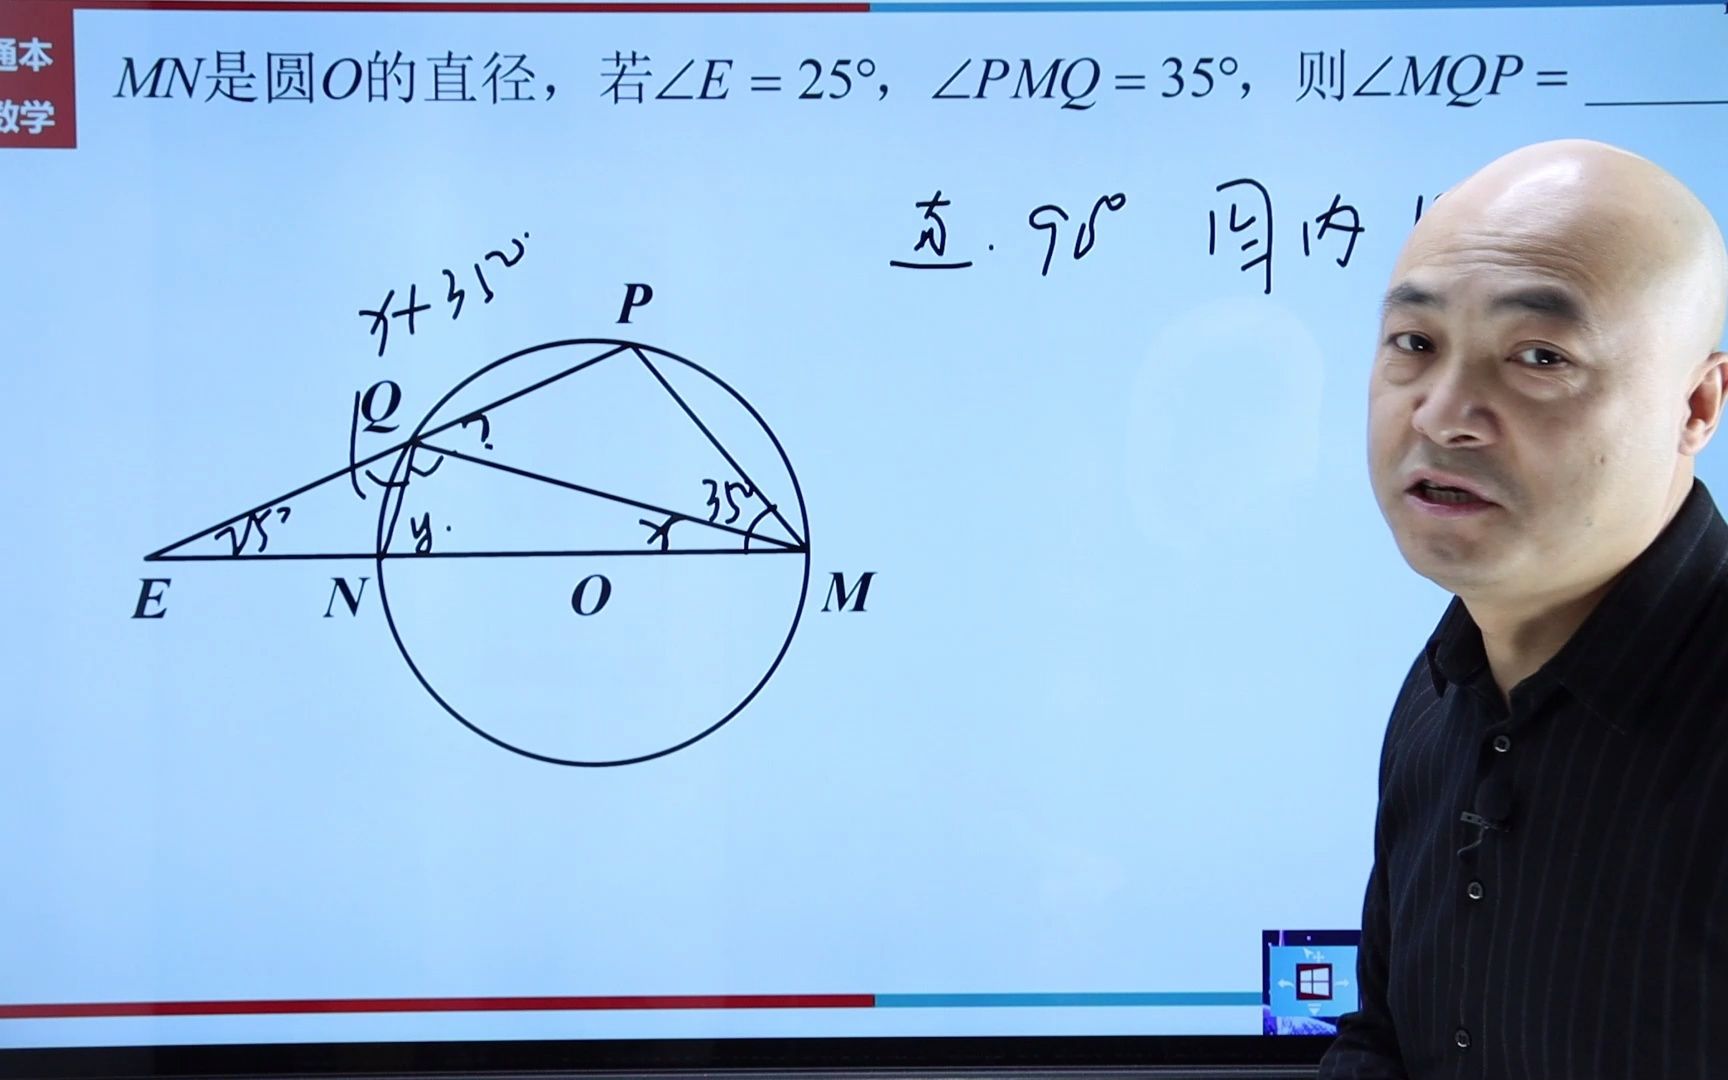 通本
数学
MN是圆O的直径，若∠E = 25°，∠PMQ = 35°，则∠MQP = ______
直. 90° 圆内
x+35°
P
Q
?
35°
25°
y.
x
E
N
O
M